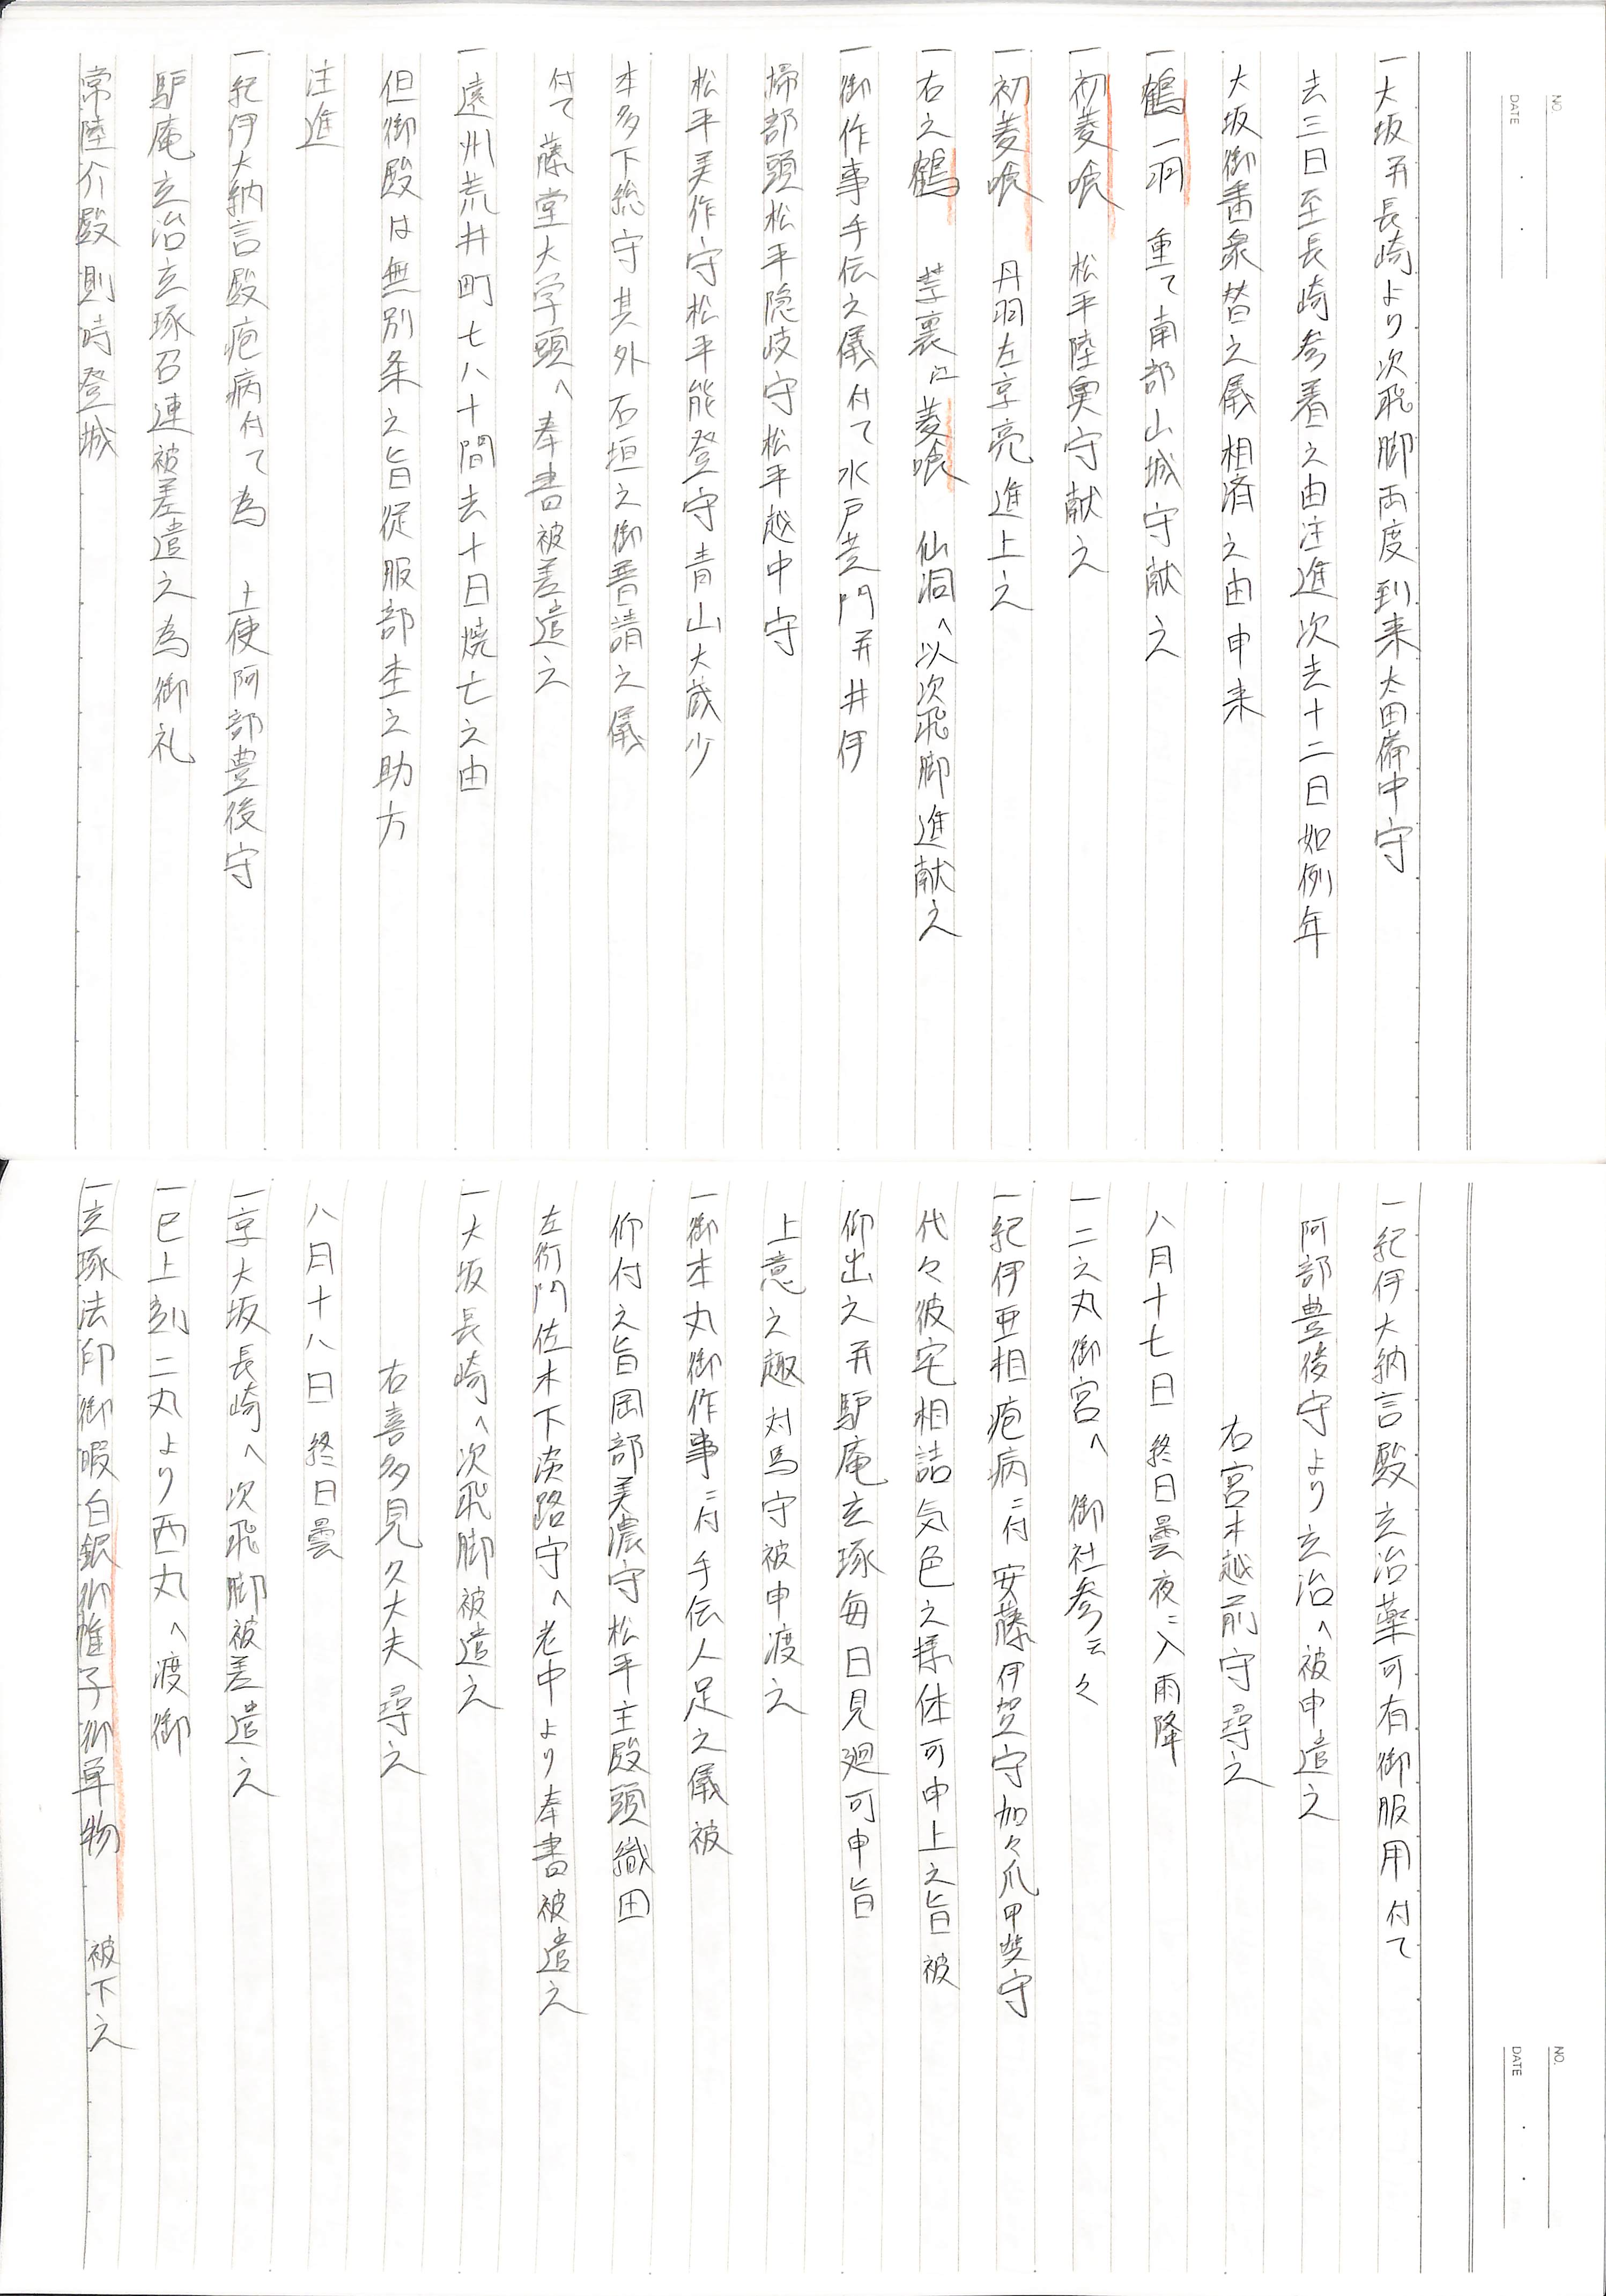 NO.
DATE
一大坂并長崎より次飛脚両度到来太田備中守
去三日至長崎参着之由注進次去十二日如例年
大坂御番衆替之儀相済之由申来
一鶴一羽 重て南部山城守献之
一初菱喰 松平陸奥守献之
一初菱喰 丹羽左京亮進上之
一右之鶴 禁裏江菱喰 仙洞へ以次飛脚進献之
一御作事手伝之儀付て水戸黄門并井伊
掃部頭松平隠岐守松平越中守
松平美作守松平能登守青山大蔵少
本多下総守其外石垣之御普請之儀
付て藤堂大学頭へ奉書被差遣之
一遠州荒井町七八十間去十日焼亡之由
但御殿は無別条之旨従服部杢之助方
注進
一紀伊大納言殿疱病付て為 上使阿部豊後守
驢庵立治立琢召連被差遣之為御礼
常陸介殿則時登城
NO.
DATE
一紀伊大納言殿立治薬可有御服用付て
阿部豊後守より立治へ被申遣之
右宮木越前守尋之
八月十七日 終日曇夜ニ入雨降
一二之丸御宮へ 御社参云々
一紀伊亜相疱病ニ付安藤伊賀守加々爪甲斐守
代々彼宅相詰気色之様体可申上之旨被
仰出之并驢庵立琢毎日見廻可申旨
上意之趣対馬守被申渡之
一御本丸御作事ニ付手伝人足之儀被
仰付之旨岡部美濃守松平主殿頭織田
左衛門佐木下淡路守へ老中より奉書被遣之
一大坂長崎へ次飛脚被遣之
右喜多見久大夫尋之
八月十八日 終日曇
一京大坂長崎へ次飛脚被差遣之
一巳上刻二丸より西丸へ渡御
一立琢法印御暇白銀御帷子御単物 被下之